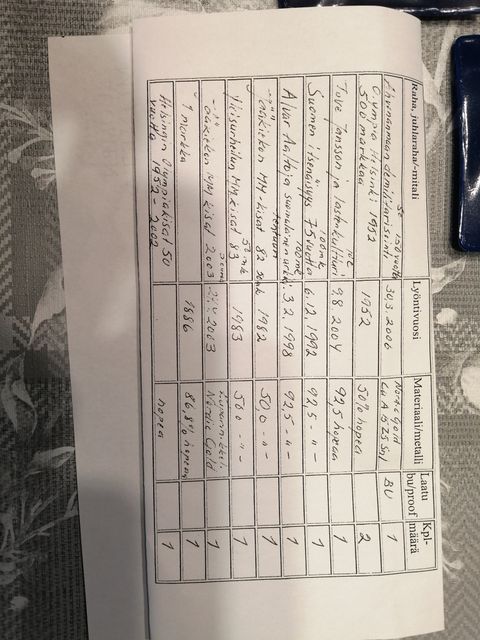 Raha, juhlaraha/-mitali Lyöntivuosi Materiaali/metalli Laatu bu/proof Kpl-määrä
Ahvenanmaan demilitarisointi 150 vuotta 30.3.2006 Nordic Gold BU 1
Olympia Helsinki 1952
500 markkaa 1952 50% hopea 2
Tove Jansson ja lasten kulttuuri 10€ 9.8 2004 92,5 hopeaa 1
Suomen itsenäisyys 75 vuotta 100mk 6.12.1992 92,5 -"- 1
Alvar Aalto ja suomalainen 100mk 3.2.1998 92,5 -"- 1
Jääkiekon MM-kisat 82 50mk 1982 50,0 -"- 1
Yleisurheilun MM kisat 83 50 mk 1983 500 -"- 1
Jääkiekon MM kisat 2003 5 euroa 2003 Nordic Gold 1
1 markka 1886 86,8% hopeaa 1
Helsingin Olympiakisat 50
vuotta 1952-2002 hopea 1